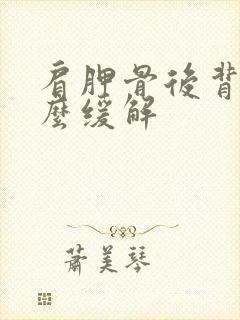 肩胛骨後背
麼緩解
蕭美琴